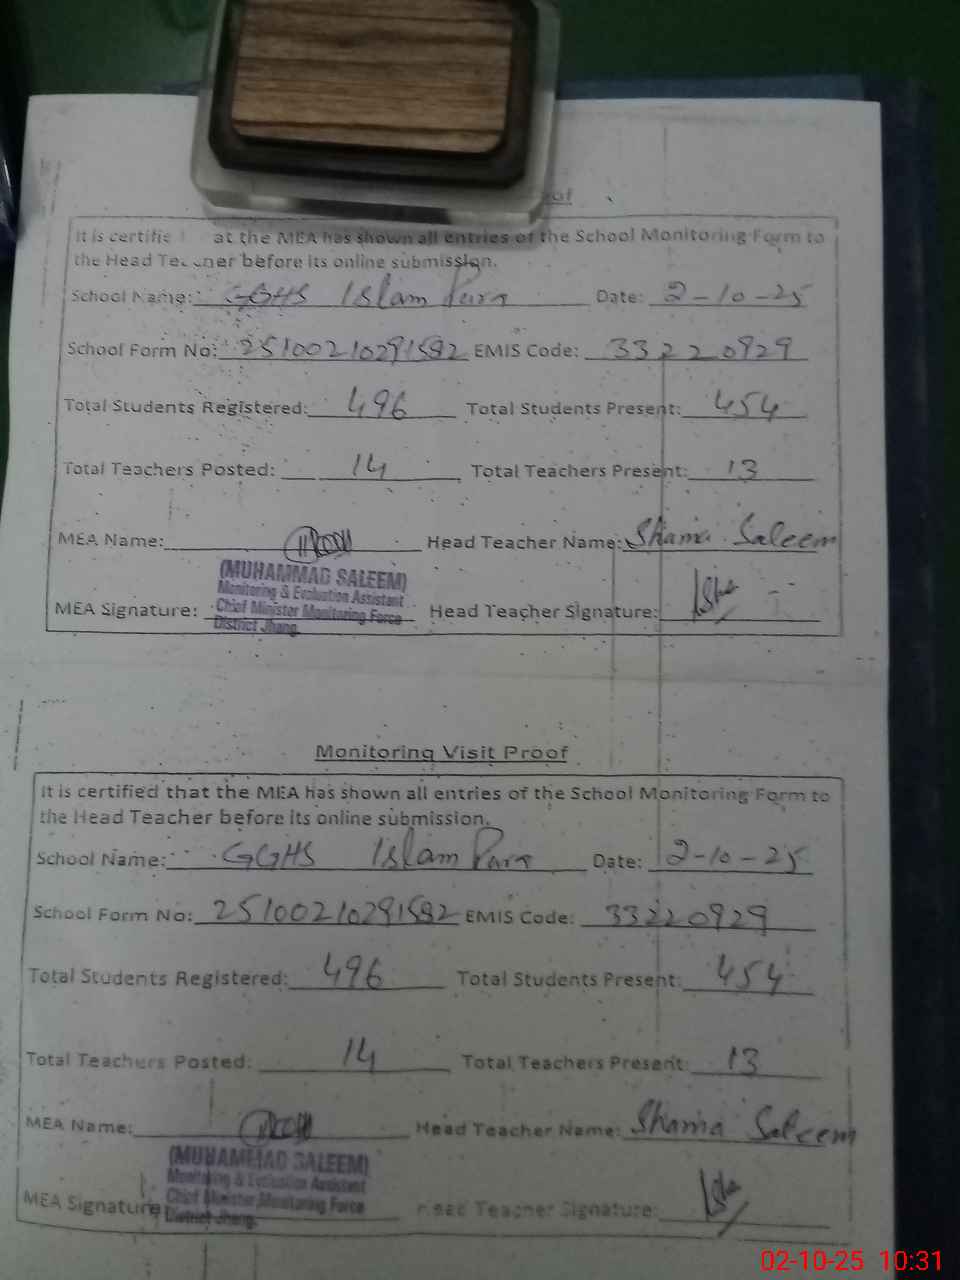 of
It is certifie at the MEA has shown all entries of the School Monitoring Form to
the Head Teacher before its online submission.
School Name: GGHS Islam Pura Date: 2-10-25
School Form No: 25100210291582 EMIS Code: 33220929
Total Students Registered: 496 Total Students Present: 454
Total Teachers Posted: 14 Total Teachers Present: 13
MEA Name: Head Teacher Name: Shama Saleem
(MUHAMMAD SALEEM)
Monitoring & Evaluation Assistant
MEA Signature: Chief Minister Monitoring Force Head Teacher Signature:
District Jhang.
Monitoring Visit Proof
It is certified that the MEA has shown all entries of the School Monitoring Form to
the Head Teacher before its online submission.
School Name: GGHS Islam Pura Date: 2-10-25
School Form No: 25100210291582 EMIS Code: 33220929
Total Students Registered: 496 Total Students Present: 454
Total Teachers Posted: 14 Total Teachers Present: 13
MEA Name: Head Teacher Name: Shama Saleem
(MUHAMMAD SALEEM)
Monitoring & Evaluation Assistant
MEA Signature Chief Minister Monitoring Force Head Teacher Signature:
District Jhang.
02-10-25 10:31